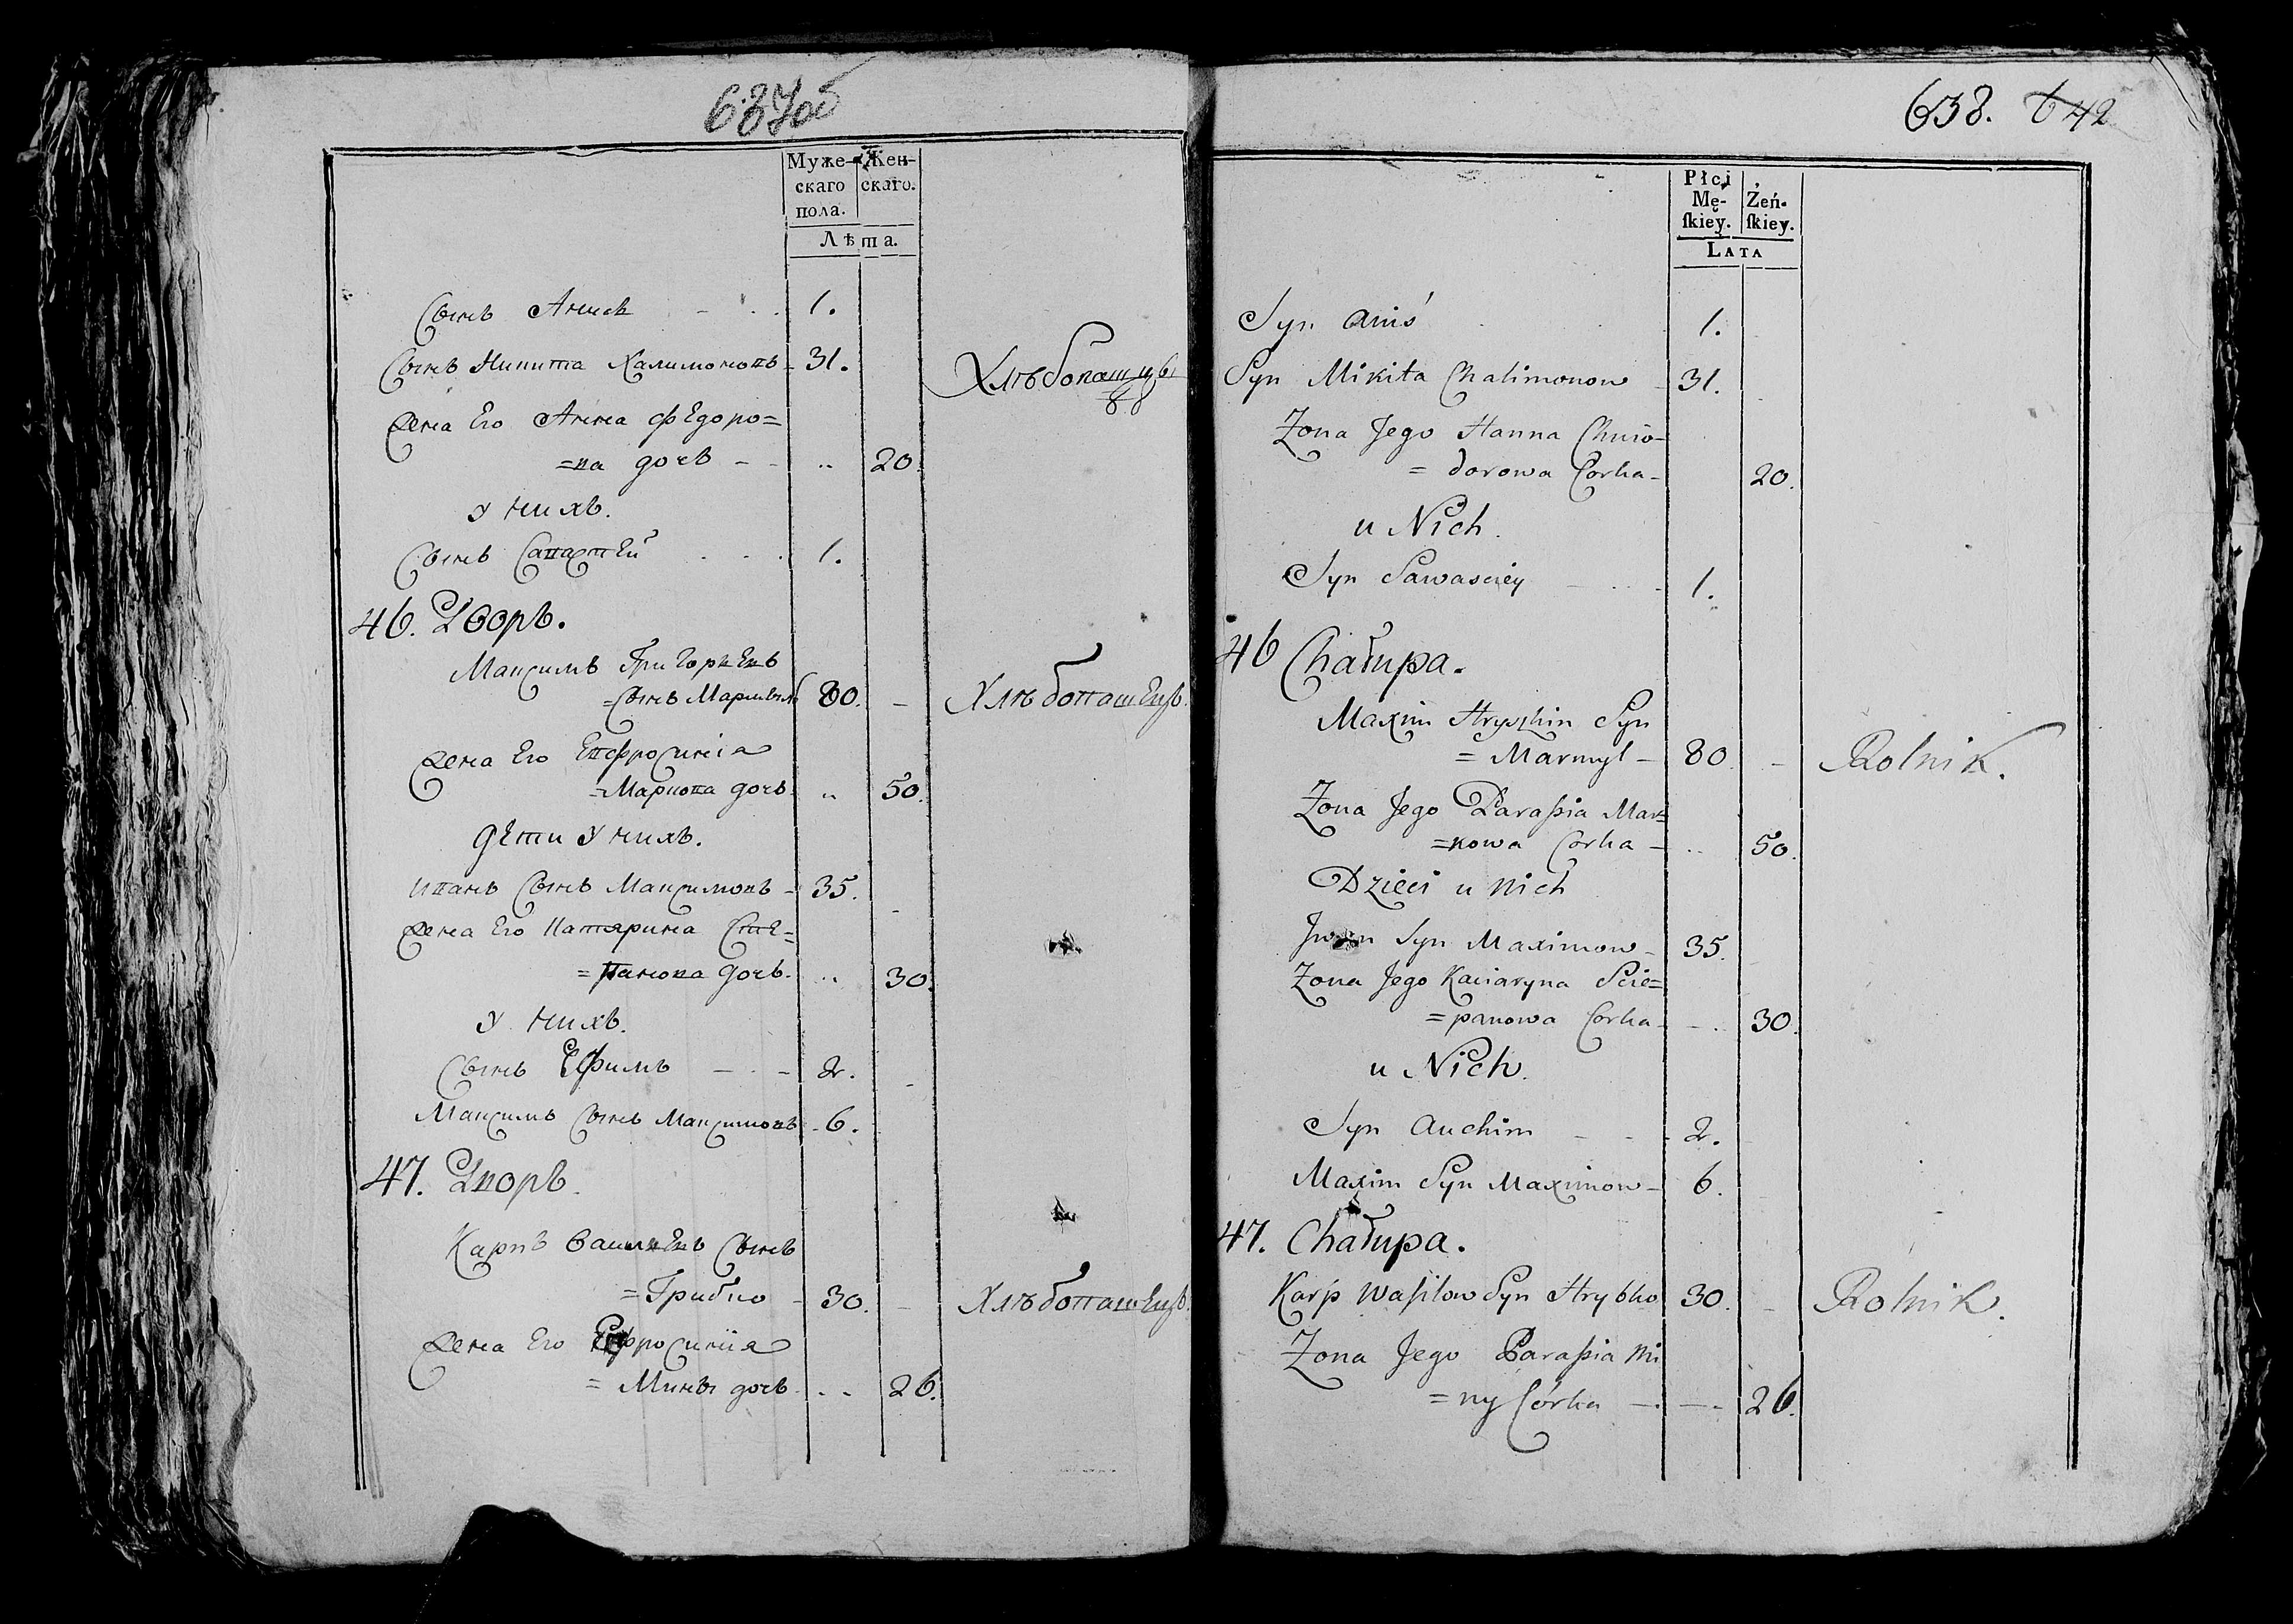 637об
Муже-
скаго
пола.
Жен-
скаго.
Лѣта.
Сынъ Анисъ - . . 1.
Сынъ Никита Халимоновъ - 31.
Хлѣбопашцы
Жена Его Анна Федоро=
=ва дочь - - .. 20.
У нихъ.
Сынъ Савастей . . . 1.
46. Дворъ.
Максимъ Григорьевъ
=Сынъ Мармыль 80. - Хлѣбопашецъ.
Жена Его Евфросинія
=Маркова дочь .. 50.
Дети У нихъ.
Иванъ Сынъ Максимовъ - 35.
Жена Его Катярина Сте=
=панова дочь. .. 30.
У нихъ.
Сынъ Ефимъ - - - 2.
Максимъ Сынъ Максимовъ - 6.
47. Дворъ.
Карпъ Васильевъ Сынъ
=Грибко - 30. - Хлѣбопашецъ.
Жена Его Ефросинія
= Мины дочь .. 26.
638. 642
Płci
Mę-
ſkiey.
Żeń-
ſkiey.
LATA
Syn Aniś . . 1.
Syn Mikita Chalimonow - 31.
Zona Jego Hanna Chwio-
= dorowa Corka - 20.
u Nich.
Syn Sawasciey - . . - 1.
46 Chałupa.
Maxim Hryszkin Syn
= Marmyl - 80 - Rolnik.
Zona Jego Paraſsia Mar=
=kowa Corka - .. 50.
Dzieci u nich
Jwan Syn Maximow - 35.
Zona Jego Kaciaryna Scie=
=panowa Corka - - . 30.
u Nich.
Syn Auchim - - - 2.
Maxim Syn Maximow - 6.
47. Chałupa.
Karp Waſilow Syn Hrybko 30. - Rolnik.
Zona Jego Paraſsia Mi
=ny Córka - . - - 26.